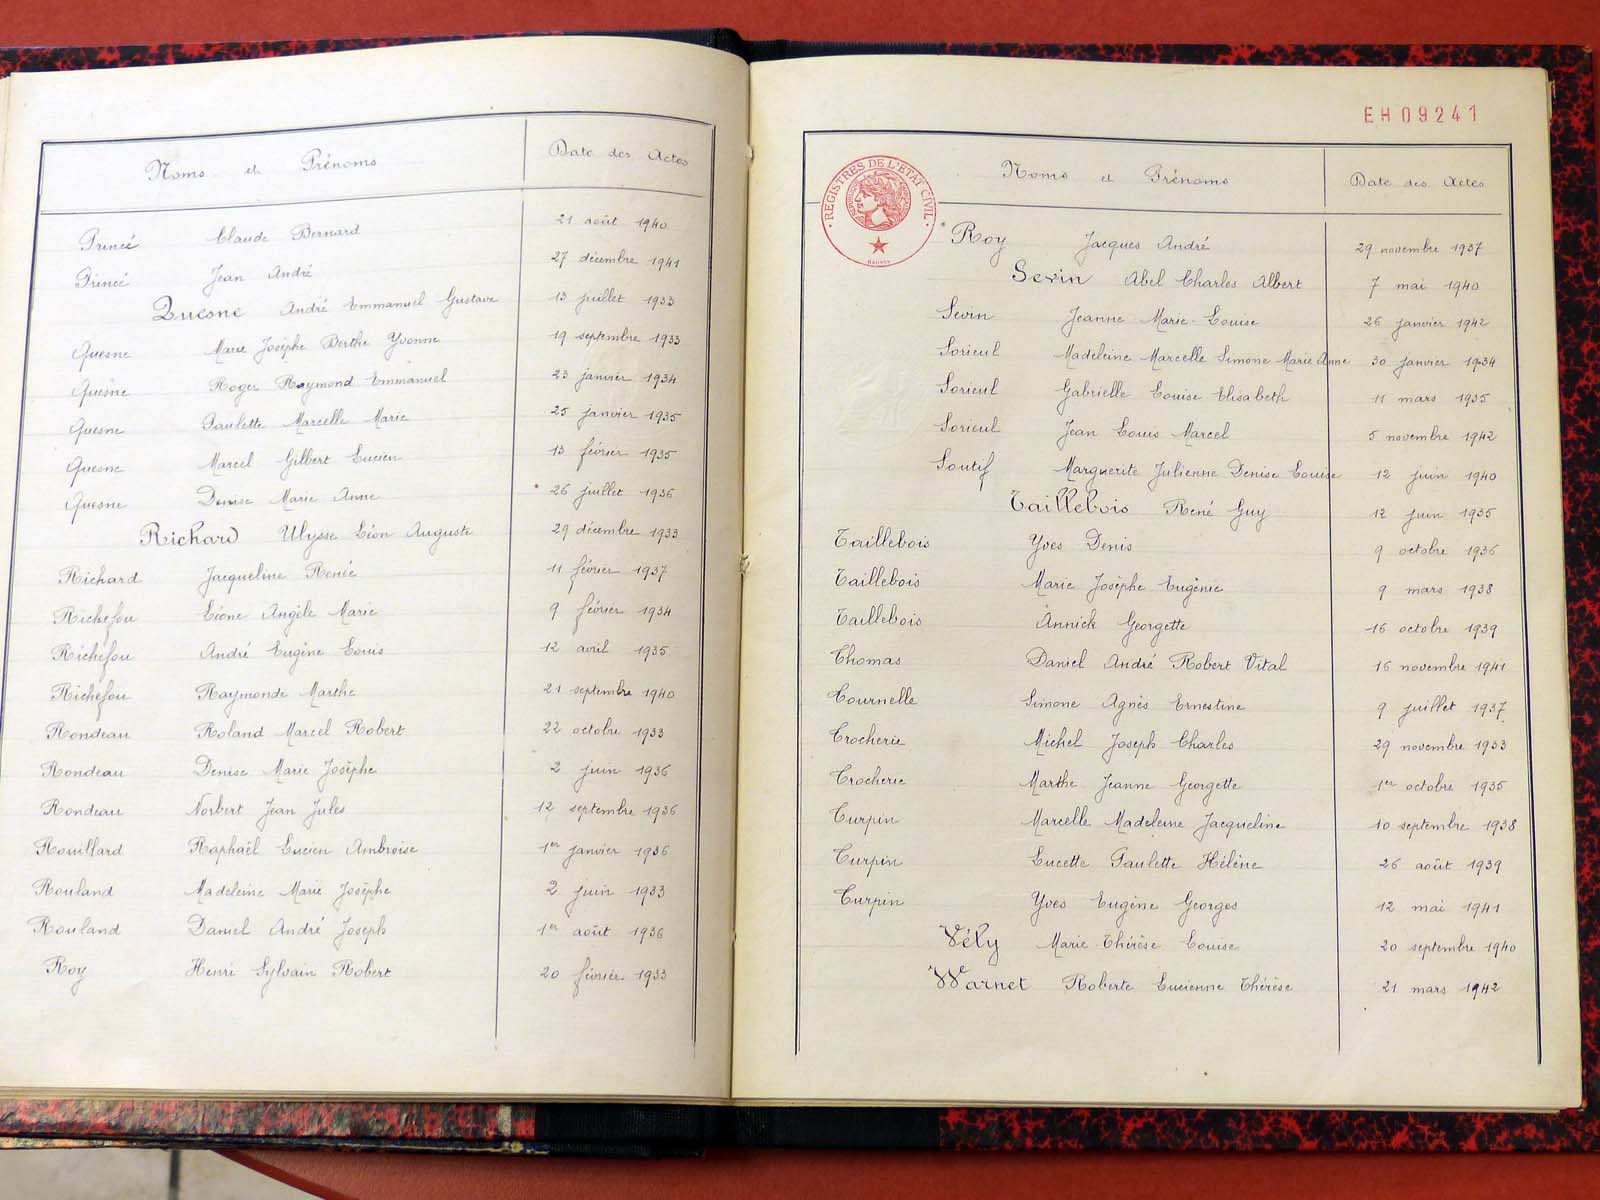 Noms et Prénoms Date des Actes
Princé Claude Bernard 21 août 1940
Princé Jean André 27 décembre 1941
Quesne André Emmanuel Gustave 13 juillet 1933
Quesne Marie Josèphe Berthe Yvonne 19 septembre 1933
Quesne Roger Raymond Emmanuel 23 janvier 1934
Quesne Paulette Marcelle Marie 25 janvier 1935
Quesne Marcel Gilbert Lucien 13 février 1935
Quesne Denise Marie Anne 26 juillet 1936
Richard Ulysse Léon Auguste 29 décembre 1933
Richard Jacqueline Renée 11 février 1937
Richefou Léone Angèle Marie 9 février 1934
Richefou André Eugène Louis 12 avril 1935
Richefou Raymonde Marthe 21 septembre 1940
Rondeau Roland Marcel Robert 22 octobre 1933
Rondeau Denise Marie Josèphe 2 juin 1936
Rondeau Norbert Jean Jules 12 septembre 1936
Rouillard Raphaël Lucien Ambroise 1er janvier 1936
Rouland Madeleine Marie Josèphe 2 juin 1933
Rouland Daniel André Joseph 1er août 1936
Roy Henri Sylvain Robert 20 février 1933
EH09241
REGISTRES DE L'ETAT CIVIL
Noms et Prénoms Date des Actes
Roy Jacques André 29 novembre 1937
Sevin Abel Charles Albert 7 mai 1940
Sevin Jeanne Marie-Louise 26 janvier 1942
Sorieul Madeleine Marcelle Simone Marie Anne 30 janvier 1934
Sorieul Gabrielle Louise Elisabeth 11 mars 1935
Sorieul Jean Louis Marcel 5 novembre 1942
Soutif Marguerite Julienne Denise Louise 12 juin 1940
Taillebois René Guy 12 juin 1935
Taillebois Yves Denis 9 octobre 1936
Taillebois Marie Josèphe Eugénie 9 mars 1938
Taillebois Annick Georgette 16 octobre 1939
Thomas Daniel André Robert Vital 16 novembre 1941
Tournelle Simone Agnès Ernestine 9 juillet 1937
Trocherie Michel Joseph Charles 29 novembre 1933
Trocherie Marthe Jeanne Georgette 1er octobre 1935
Turpin Marcelle Madeleine Jacqueline 10 septembre 1938
Turpin Lucette Paulette Hélène 26 août 1939
Turpin Yves Eugène Georges 12 mai 1941
Vély Marie-Thérèse Louise 20 septembre 1940
Warnet Roberte Lucienne Thérèse 21 mars 1942